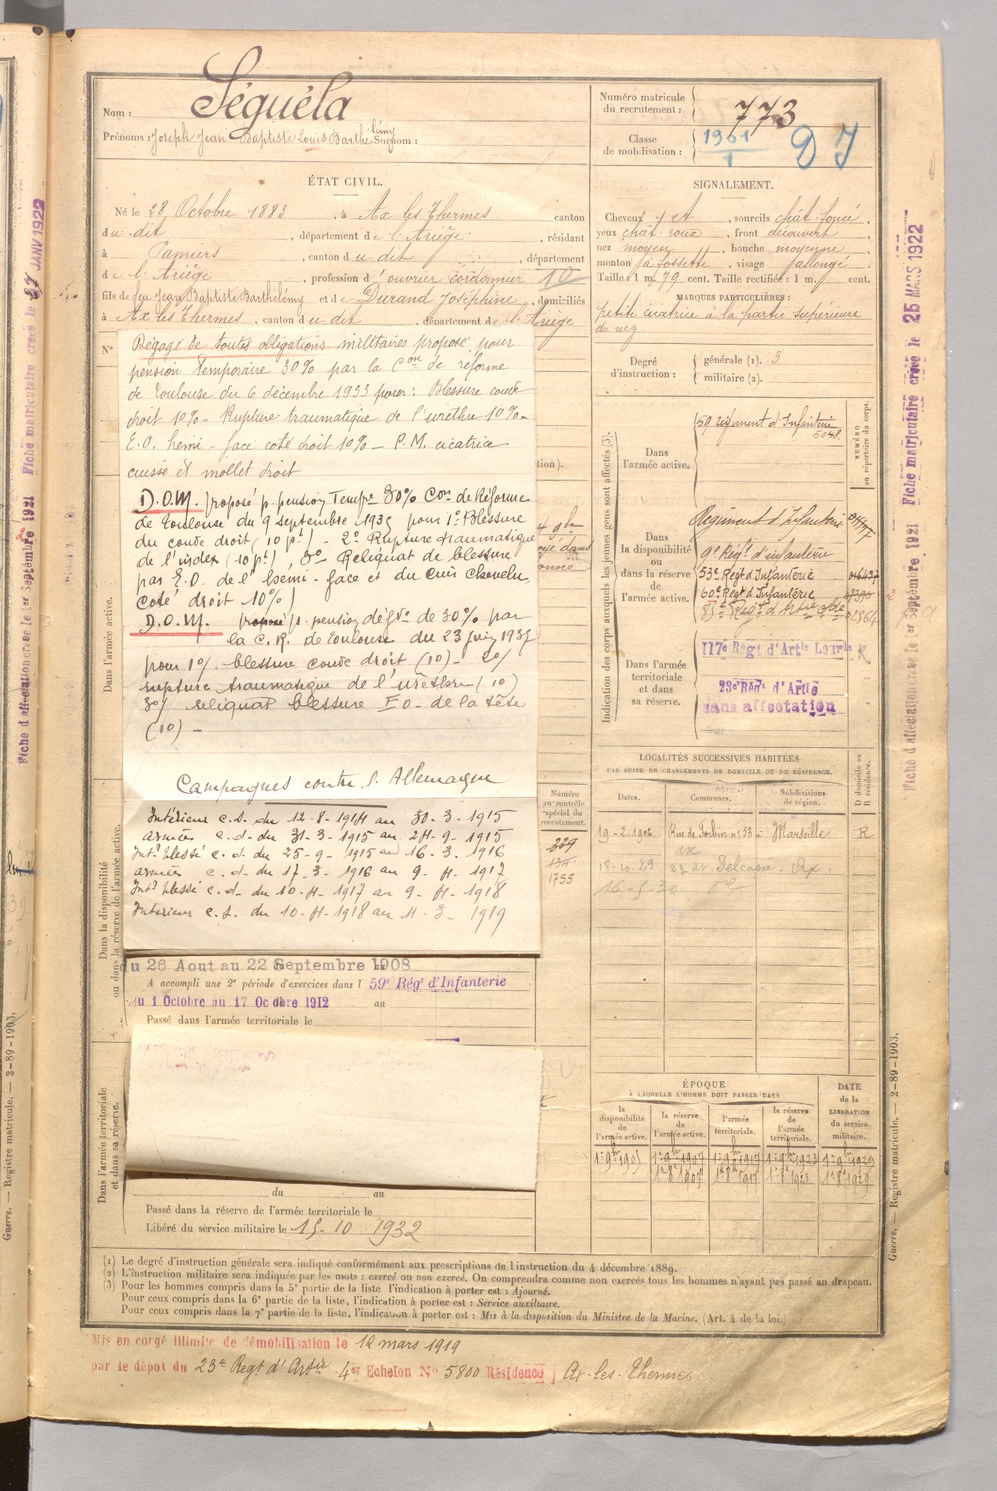 Nom : Séguéla
Prénoms : Joseph Jean Baptiste Louis Barthélémy Surnom :
Numéro matricule du recrutement : 773
Classe de mobilisation : 1901
1
DJ
ÉTAT CIVIL.
Né le 28 Octobre 1883, à Ax les Thermes canton
du dit, département de l'Ariège, résidant
à Pamiers, canton du dit, département
de l'Ariège, profession d'ouvrier cordonnier 10
fils de feu Jean Baptiste Barthélémy et de Durand Joséphine, domiciliés
à Ax les Thermes, canton du dit, département de l'Ariège
N°
SIGNALEMENT.
Cheveux , sourcils chât. foncé
yeux chât. roux, front découvert
nez moyen, bouche moyenne
menton à fossette, visage allongé
Taille : 1 m. 79 cent. Taille rectifiée : 1 m. cent.
MARQUES PARTICULIÈRES :
petite cicatrice à la partie supérieure
du nez
Degré d'instruction : générale (1). 3
militaire (2).
Dégagé de toutes obligations militaires proposé pour
pension temporaire 30% par la Con de réforme
de Toulouse du 6 décembre 1933 pour : Blessure coude
droit 10% - Rupture traumatique de l'urèthre 10% -
E.O. hémi-face coté droit 10% - P.M. cicatrice
cuisse et mollet droit
D.O.M. proposé p. pension Tempre 30% Con de Réforme
de Toulouse du 9 septembre 1935 pour 1° Blessure
du coude droit (10 pt) - 2° Rupture traumatique
de l'index (10 pt), 3° Reliquat de blessure
par E.O. de l'hémi-face et du cuir chevelu
coté droit 10%
D.O.M. proposé p. pension défve de 30% par
la C.R. de Toulouse du 23 juin 1937
pour 1°/ blessure coude droit (10) - 2°/
rupture traumatique de l'urèthre (10)
3°/ reliquat blessure E.O. de la tête
(10) -
Campagnes contre l'Allemagne
Intérieur c.s. du 12-8-1914 au 30-3-1915
armées c.d. du 31-3-1915 au 24-9-1915
Intr blessé c.d. du 25-9-1915 au 16-3-1916
armées c.d. du 17-3-1916 au 9-4-1917
Intr blessé c.d. du 10-4-1917 au 9-4-1918
Intérieur c.s. du 10-4-1918 au 11-3-1919
du 26 Aout au 22 Septembre 1908
A accompli une 2e période d'exercices dans l 59e Régt d'Infanterie
du 1 Octobre au 17 Octobre 1912 au
Passé dans l'armée territoriale le
du au
Passé dans la réserve de l'armée territoriale le
Libéré du service militaire le 15-10-1932
Dans l'armée active.
Dans la disponibilité ou dans la réserve de l'armée active.
Dans l'armée territoriale et dans sa réserve.
Numéro au contrôle spécial du recrutement.
389
1755
Indication des corps auxquels les jeunes gens sont affectés (3).
NUMÉRO au répertoire du corps.
Dans l'armée active.
59 régiment d'Infanterie
5048
Dans la disponibilité ou dans la réserve de l'armée active.
Régiment d'Infanterie
9e Régt d'infanterie
53e Regt d'Infanterie
60e Regt d'Infanterie
Dans l'armée territoriale et dans sa réserve.
117e Régt d'Artie Lourde R
23e Régt d'Artie
sans affectation
LOCALITÉS SUCCESSIVES HABITÉES
PAR SUITE DE CHANGEMENTS DE DOMICILE OU DE RÉSIDENCE.
Dates. Communes. Subdivisions de région. D domicile ou R résidence.
19-2-1906 Marseille R
18-10-29 23 av Delcassé. Ax.
16-5-30
ÉPOQUE
À LAQUELLE L'HOMME DOIT PASSER DANS
la disponibilité de l'armée active. la réserve de l'armée active. l'armée territoriale. la réserve de l'armée territoriale. DATE de la LIBÉRATION du service militaire.
1er 9bre 1905 1er 9bre 1907 1er 9bre 1917 1er 9bre 1923 1er 9bre 1929
1er 8bre 1907 1er 8bre 1917 1er 8bre 1923 1er 8bre 1929
(1) Le degré d'instruction générale sera indiqué conformément aux prescriptions de l'instruction du 4 décembre 1889.
(2) L'instruction militaire sera indiquée par les mots : exercé ou non exercé. On comprendra comme non exercés tous les hommes n'ayant pas passé au drapeau.
(3) Pour les hommes compris dans la 5e partie de la liste l'indication à porter est : Ajourné.
Pour ceux compris dans la 6e partie de la liste, l'indication à porter est : Service auxiliaire.
Pour ceux compris dans la 7e partie de la liste, l'indication à porter est : Mis à la disposition du Ministre de la Marine. (Art. 4 de la loi.)
Mis en congé illimité de démobilisation le 12 mars 1919
par le dépôt du 23e Regt d'Artie 4er Echelon N° 5800 Résidence Ax-les-Thermes
Guerre. — Registre matricule. — 2-89-1903.
Guerre. — Registre matricule. — 2-89-1903.
Fiche d'affectation créée le 1er Septembre 1921 Fiche matriculaire créée le 25 MARS 1922
Fiche d'affectation créée le 1er Septembre 1921 Fiche matriculaire créée le JANV 1922